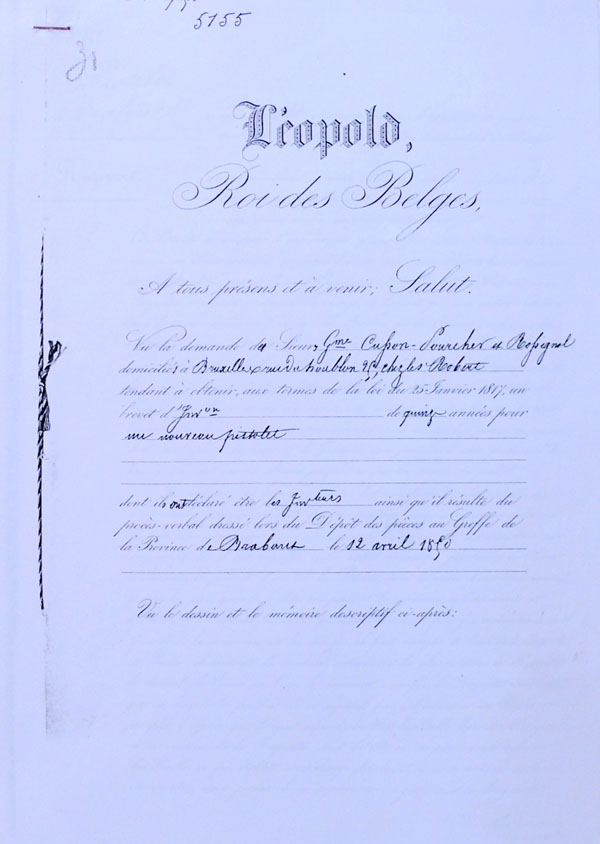 5155
31
Léopold,
Roi des Belges,
A tous présens et à venir, Salut.
Vu la demande des Sieurs Gme Cusson-Pourcher et Rossignol
domiciliés à Bruxelles, rue du houblon 25, chez les Robert
tendant à obtenir, aux termes de la loi du 25 Janvier 1817, un
brevet d'Inv on de quinze années pour
un nouveau pistolet
dont ils ont déclaré être les Inv teurs ainsi qu'il résulte du
procès-verbal dressé lors du Dépôt des pièces au Greffe de
la Province de Brabant le 12 avril 1850
Vu le dessin et le mémoire descriptif ci-après: